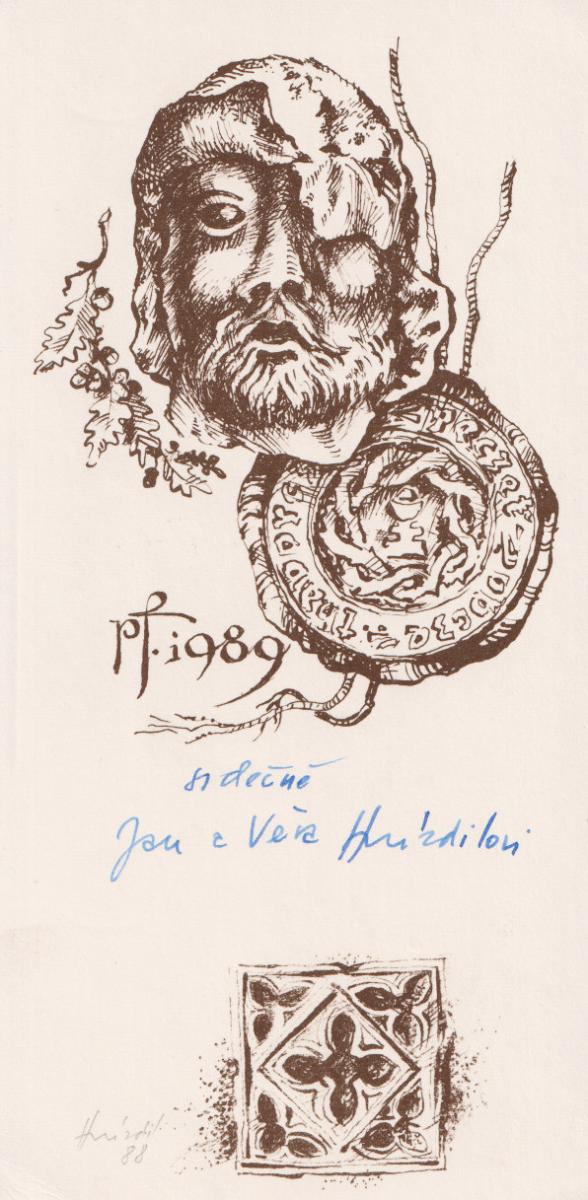 pf. 1989
srdečně
Jan a Věra Hnízdilovi
Hnízdil
88